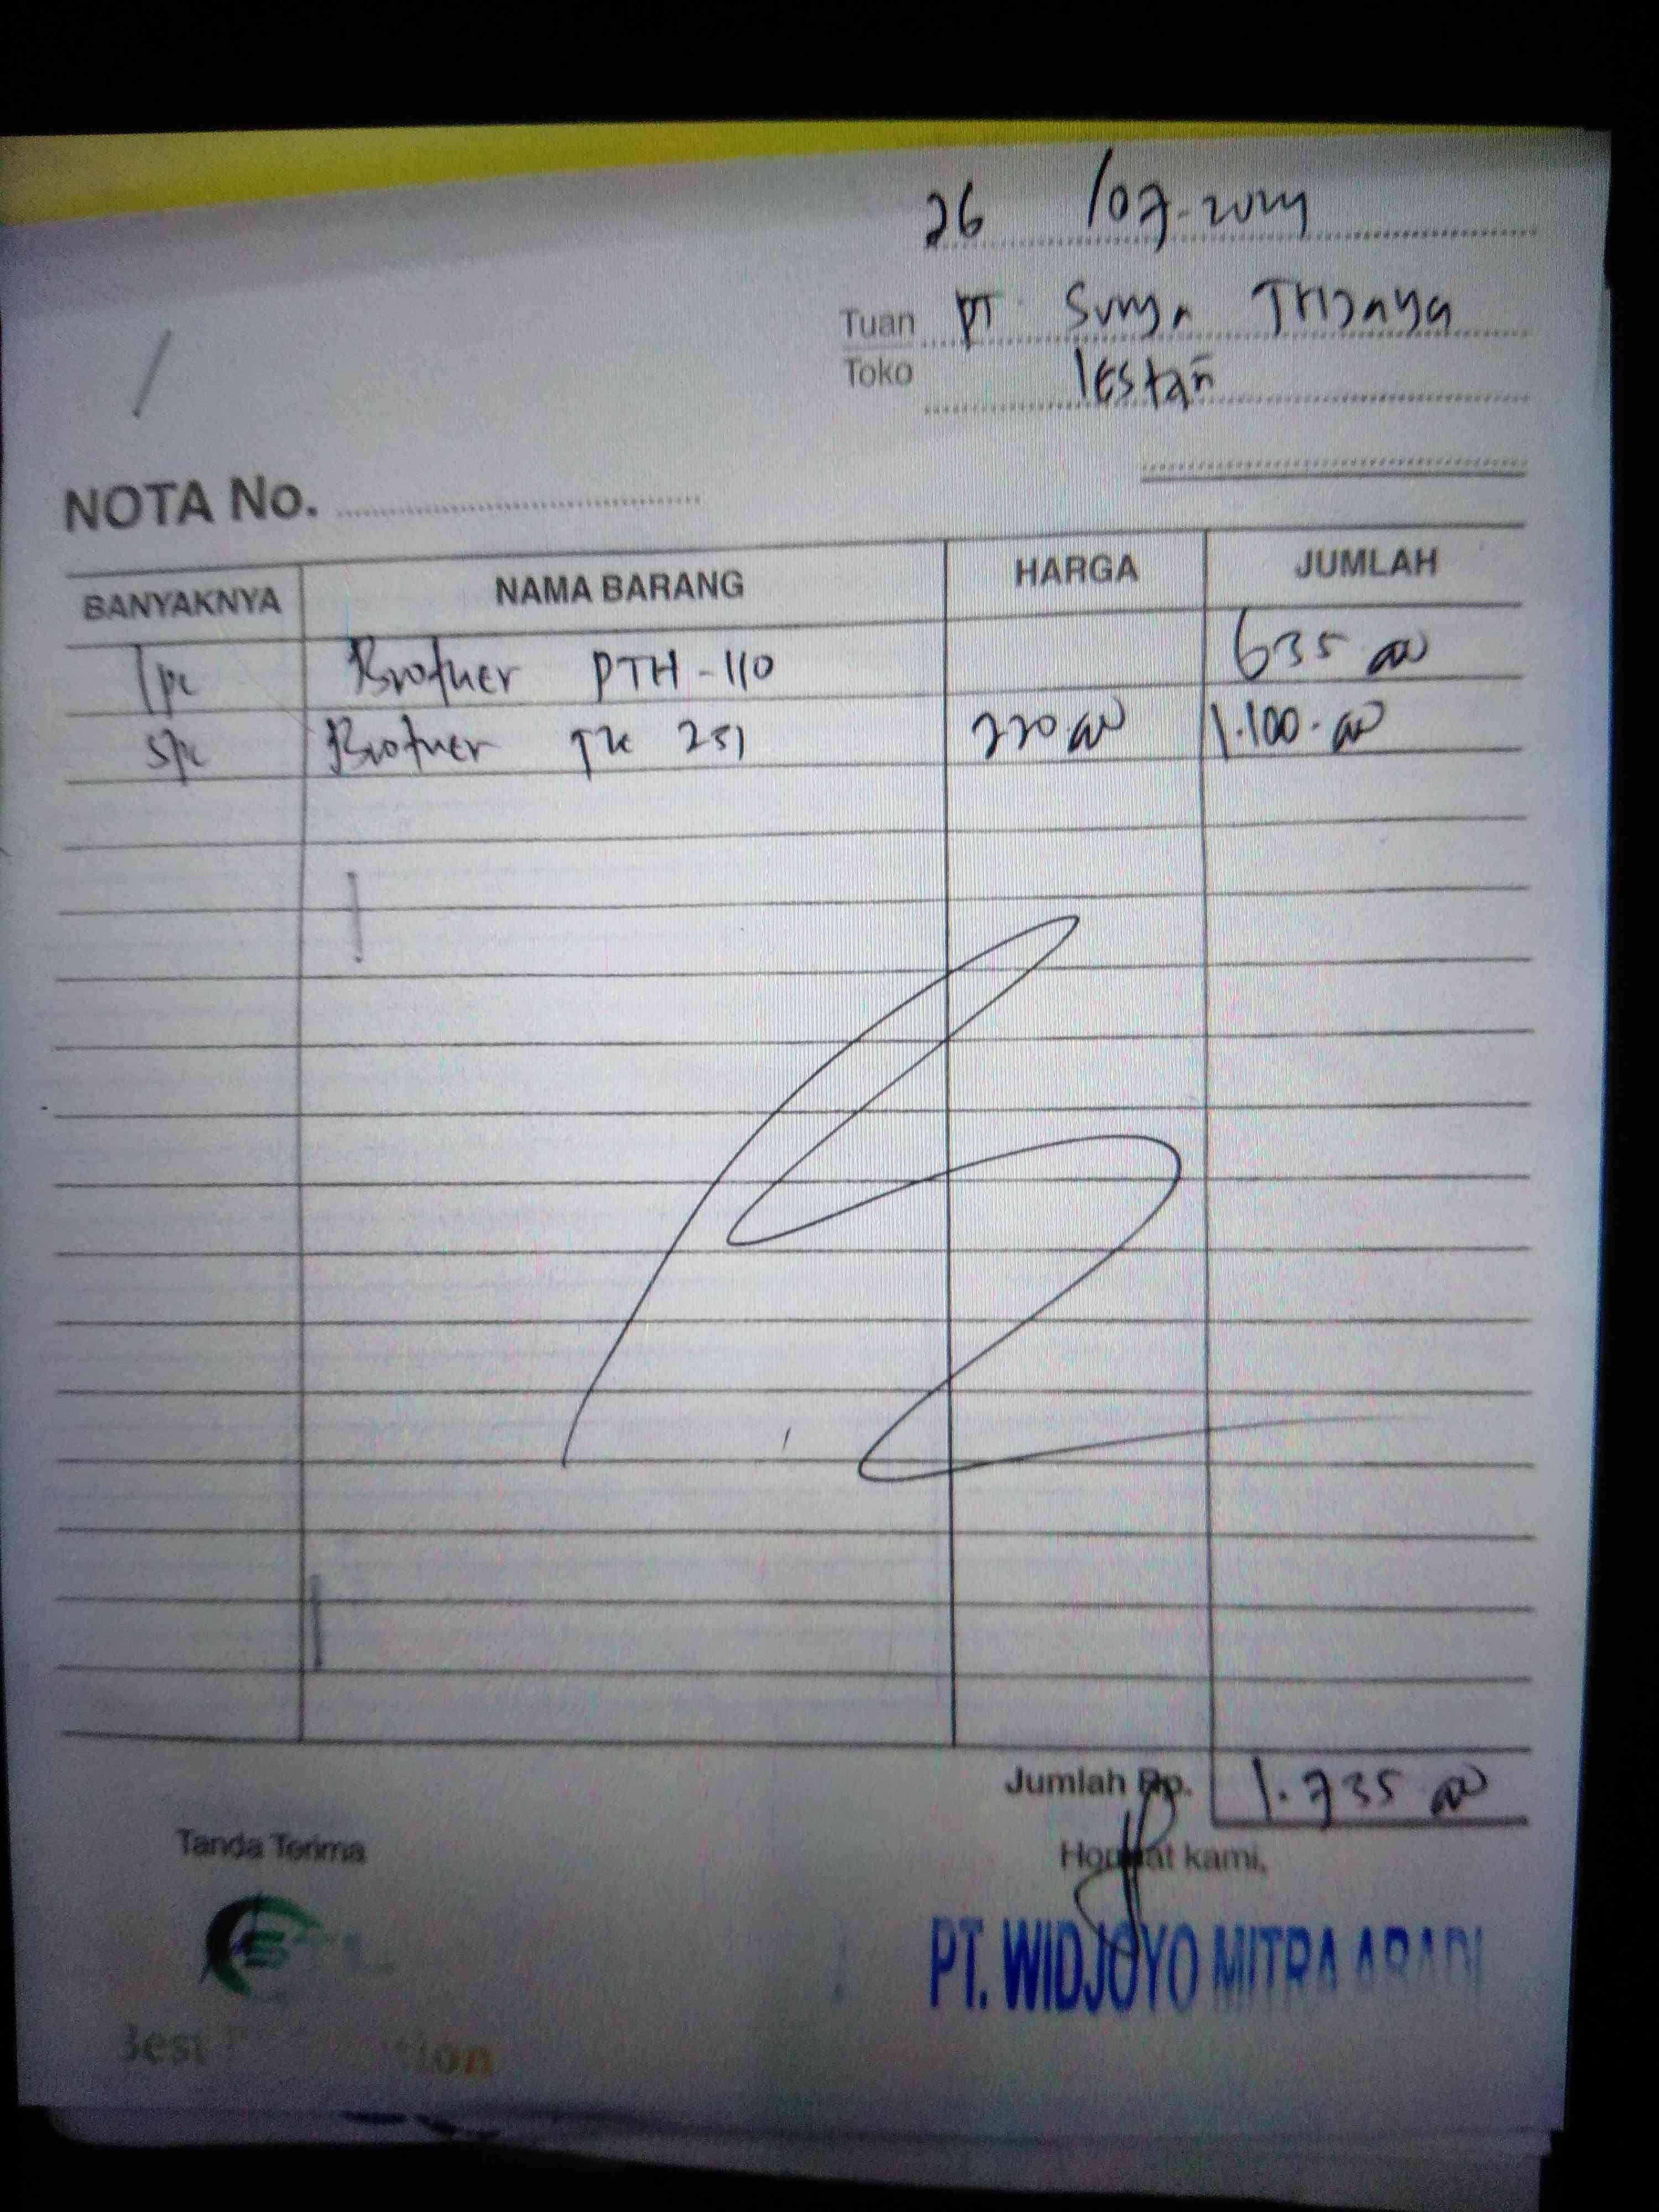 26 /07-2024
Tuan PT Surya Trijaya
Toko lestari
NOTA No.
BANYAKNYA NAMA BARANG HARGA JUMLAH
1pc Brother PTH-110 635.000
5pc Brother TZe 251 220.000 1.100.000
Jumlah Rp. 1.735.000
Tanda Terima Hormat kami,
STL PT. WIDJOYO MITRA ABADI
Best